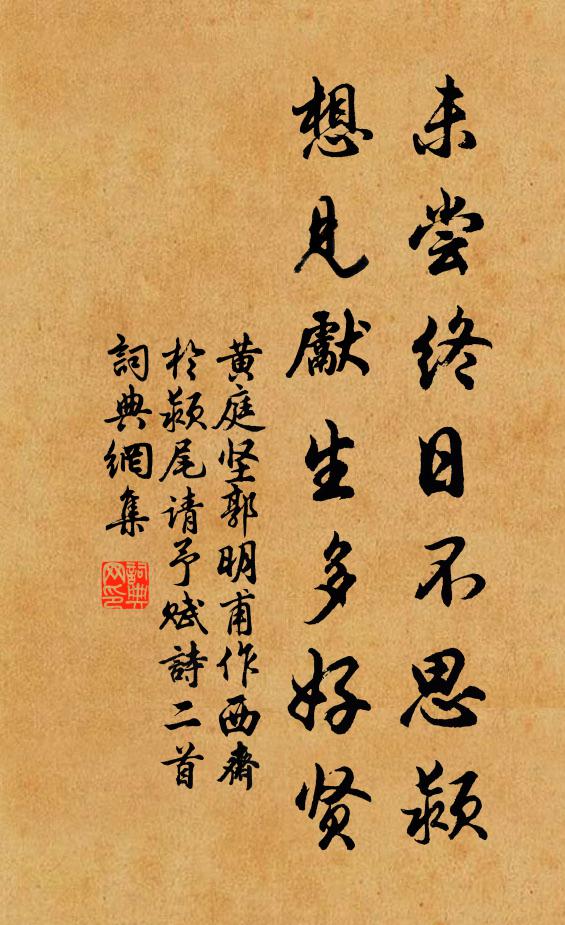 未尝终日不思颍
想见獻生多好贤
黄庭坚郭明甫作西齋
於颍尾请予赋詩二首
詞典網集
詞典网印